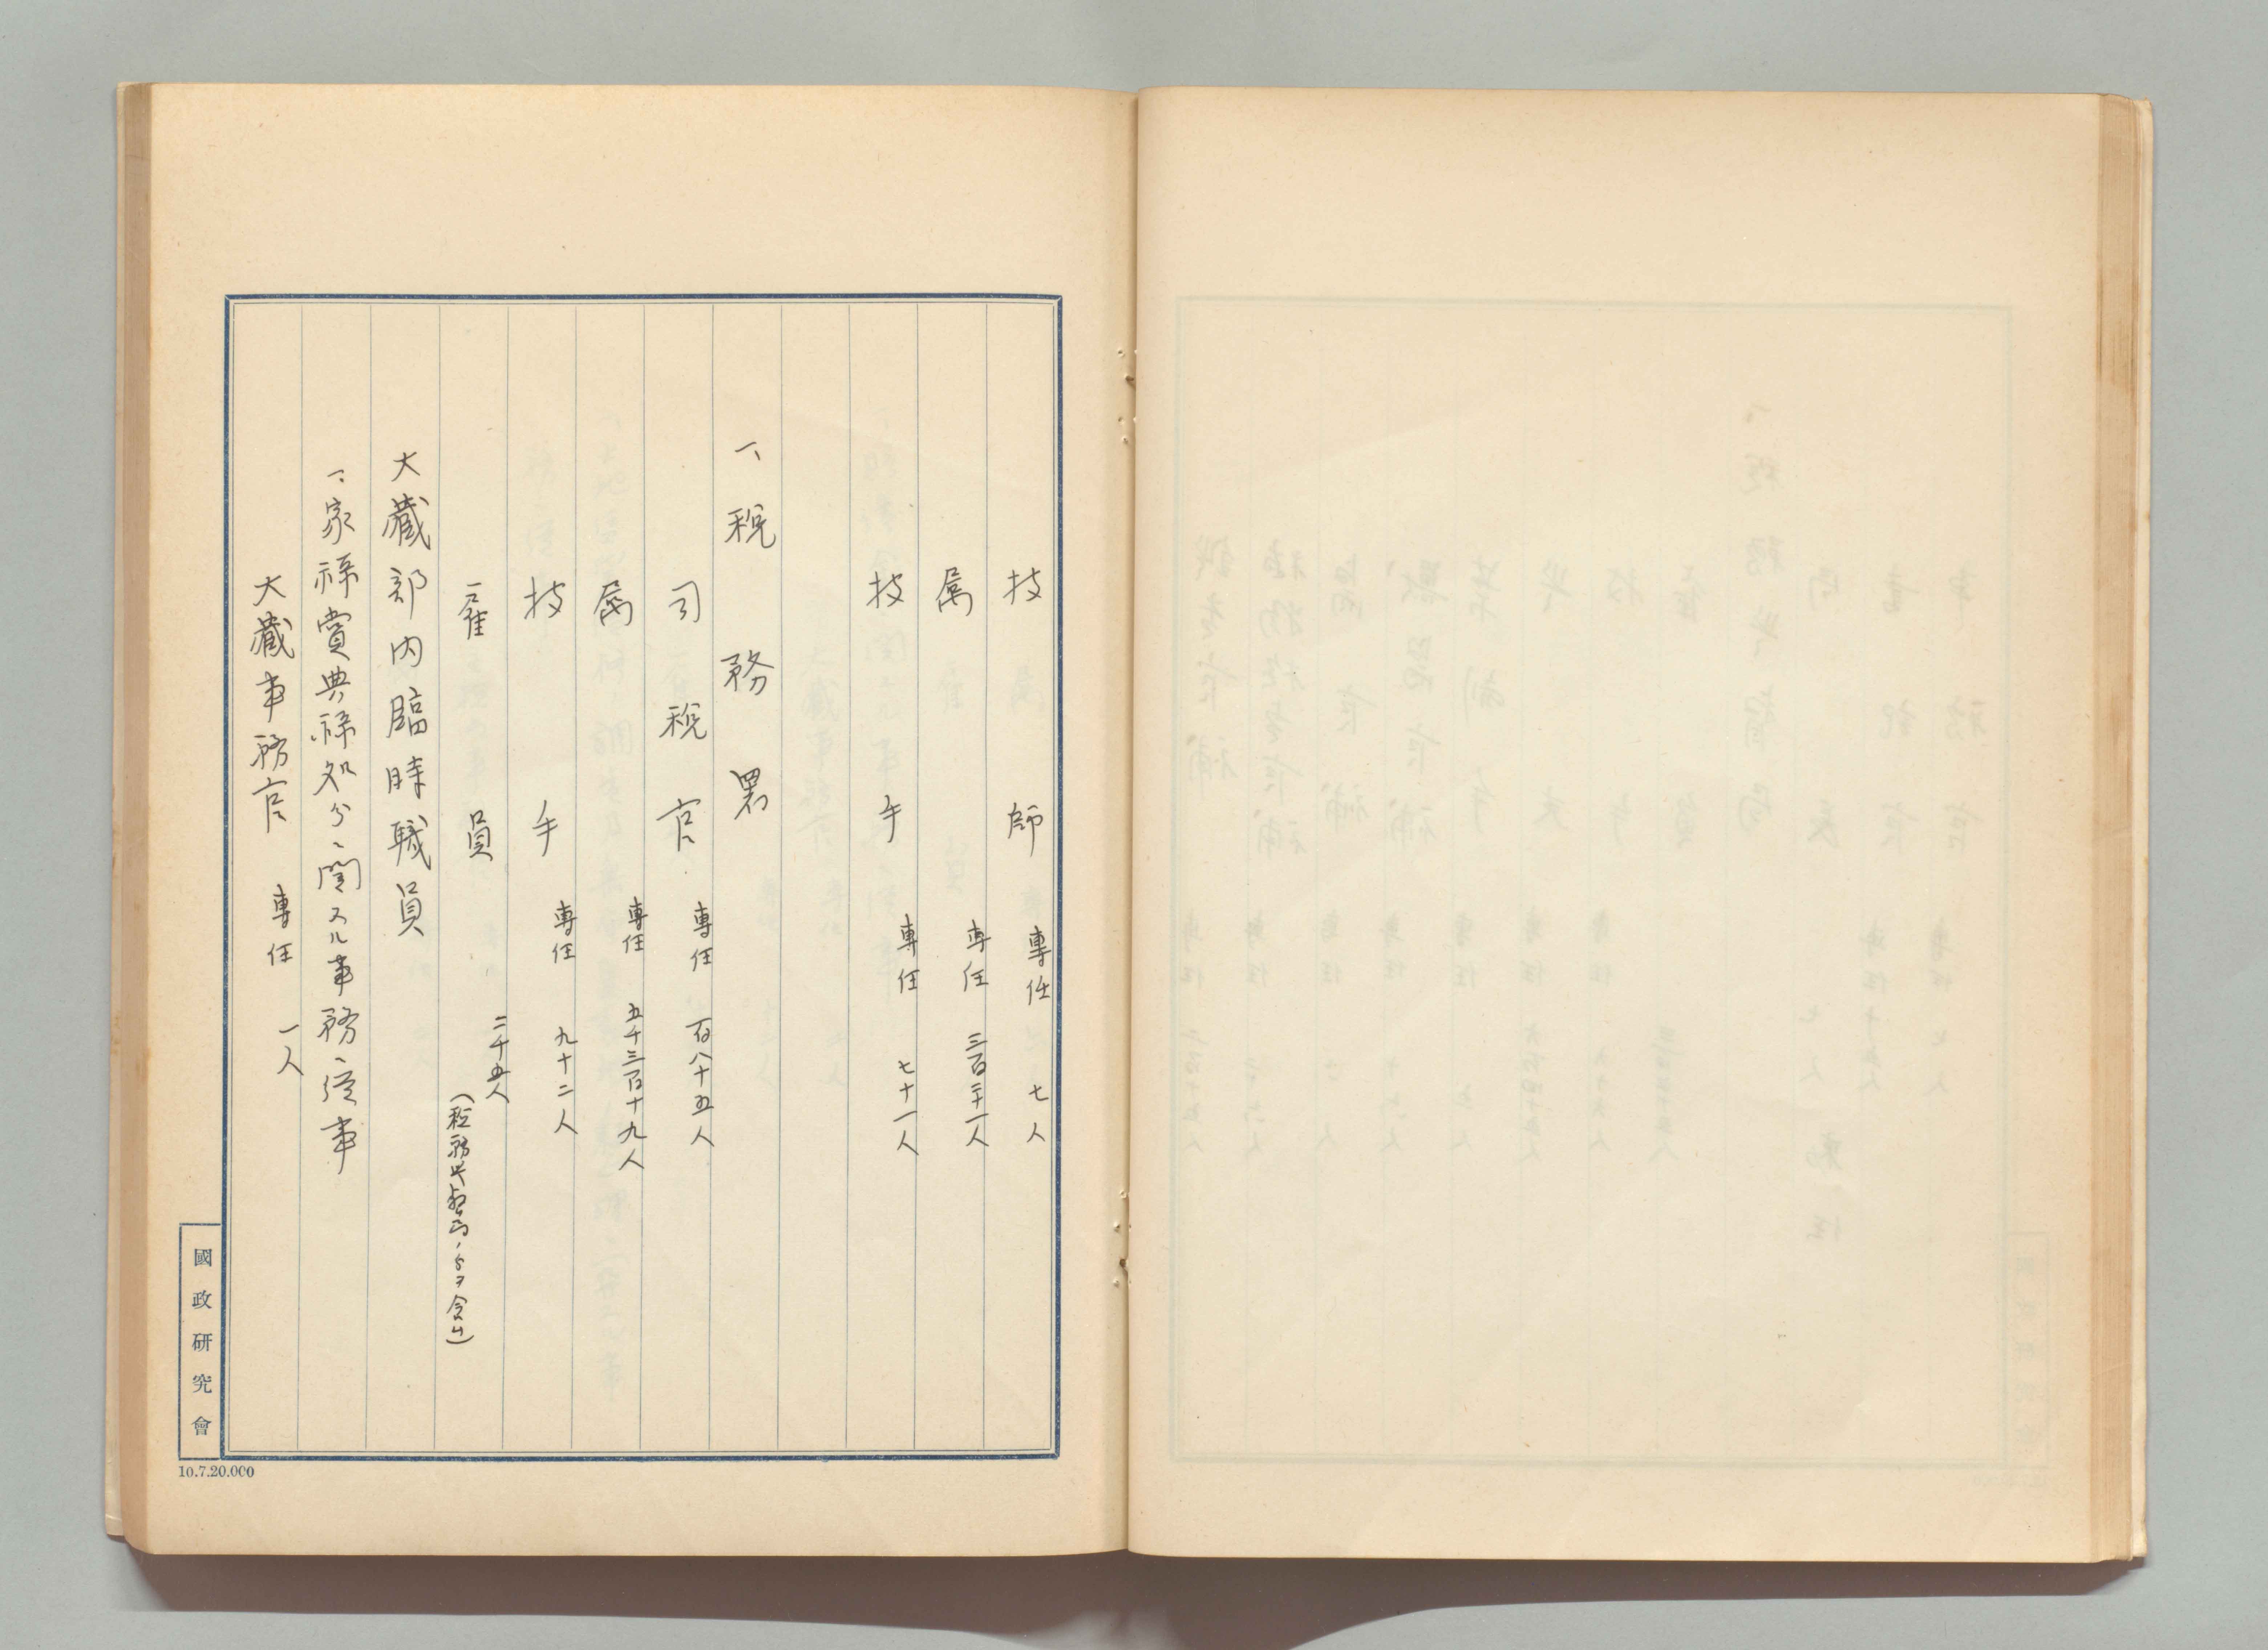 技師 專任 七人
属 専任 三百二十一人
技手 專任 七十一人
一、税務署
司税官 專任 百八十五人
属 專任 五千三百十九人
技手 專任 九十二人
雇員 二千五人
(税務監督局ノ分ヲ含ム)
大藏部内臨時職員
一、家祿賞典祿処分ニ関スル事務ニ従事
大藏事務官 專任 一人
國政研究會
10.7.20.000